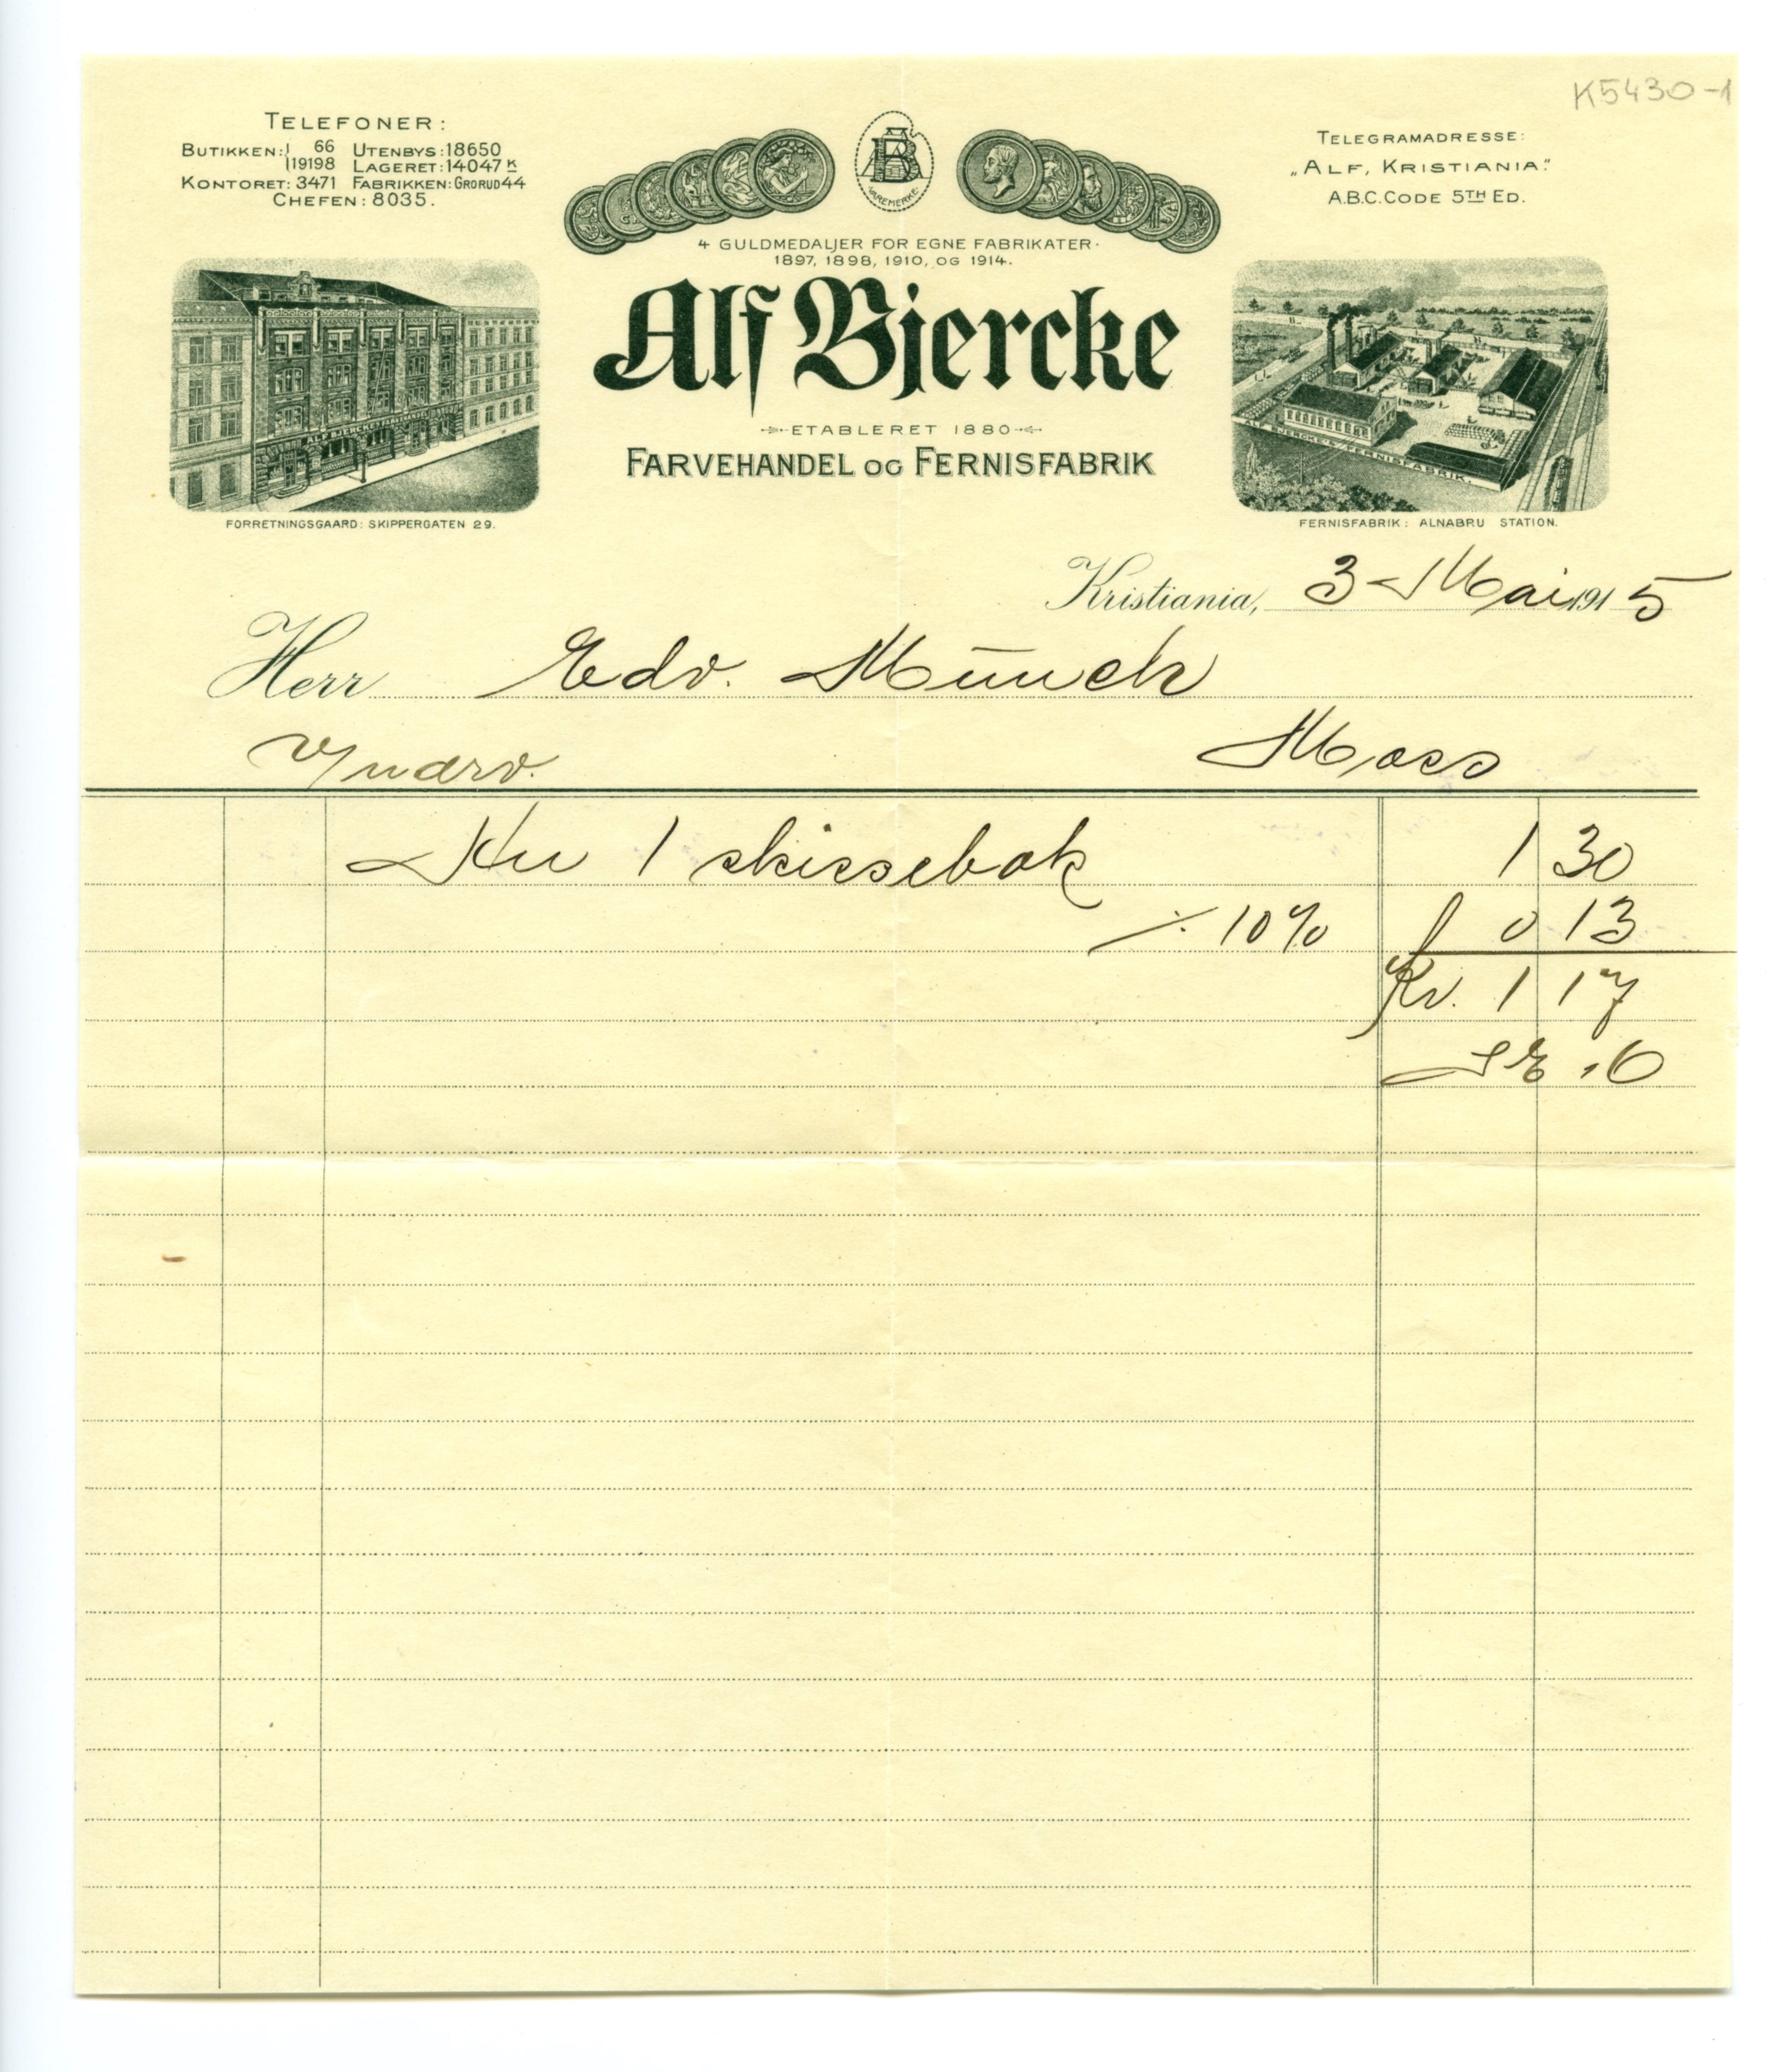 K5430-1
TELEFONER:
BUTIKKEN: 66 UTENBYS: 18650
19198 LAGERET: 14047 K
KONTORET: 3471 FABRIKKEN: GRORUD 44
CHEFEN: 8035.
VAREMERKE
TELEGRAMADRESSE:
„ALF, KRISTIANIA."
A.B.C. CODE 5TH ED.
4 GULDMEDALJER FOR EGNE FABRIKATER.
1897, 1898, 1910, OG 1914.
Alf Bjercke
ETABLERET 1880
FARVEHANDEL OG FERNISFABRIK
ALF BJERCKE
FORRETNINGSGAARD: SKIPPERGATEN 29.
ALF BJERCKE'S FERNISFABRIK.
FERNISFABRIK: ALNABRU STATION.
Kristiania, 3 Mai 1915
Herr Edv. Munch
Moss
1 skissebok 1 30
÷ 10% 0 13
Kr. 1 17